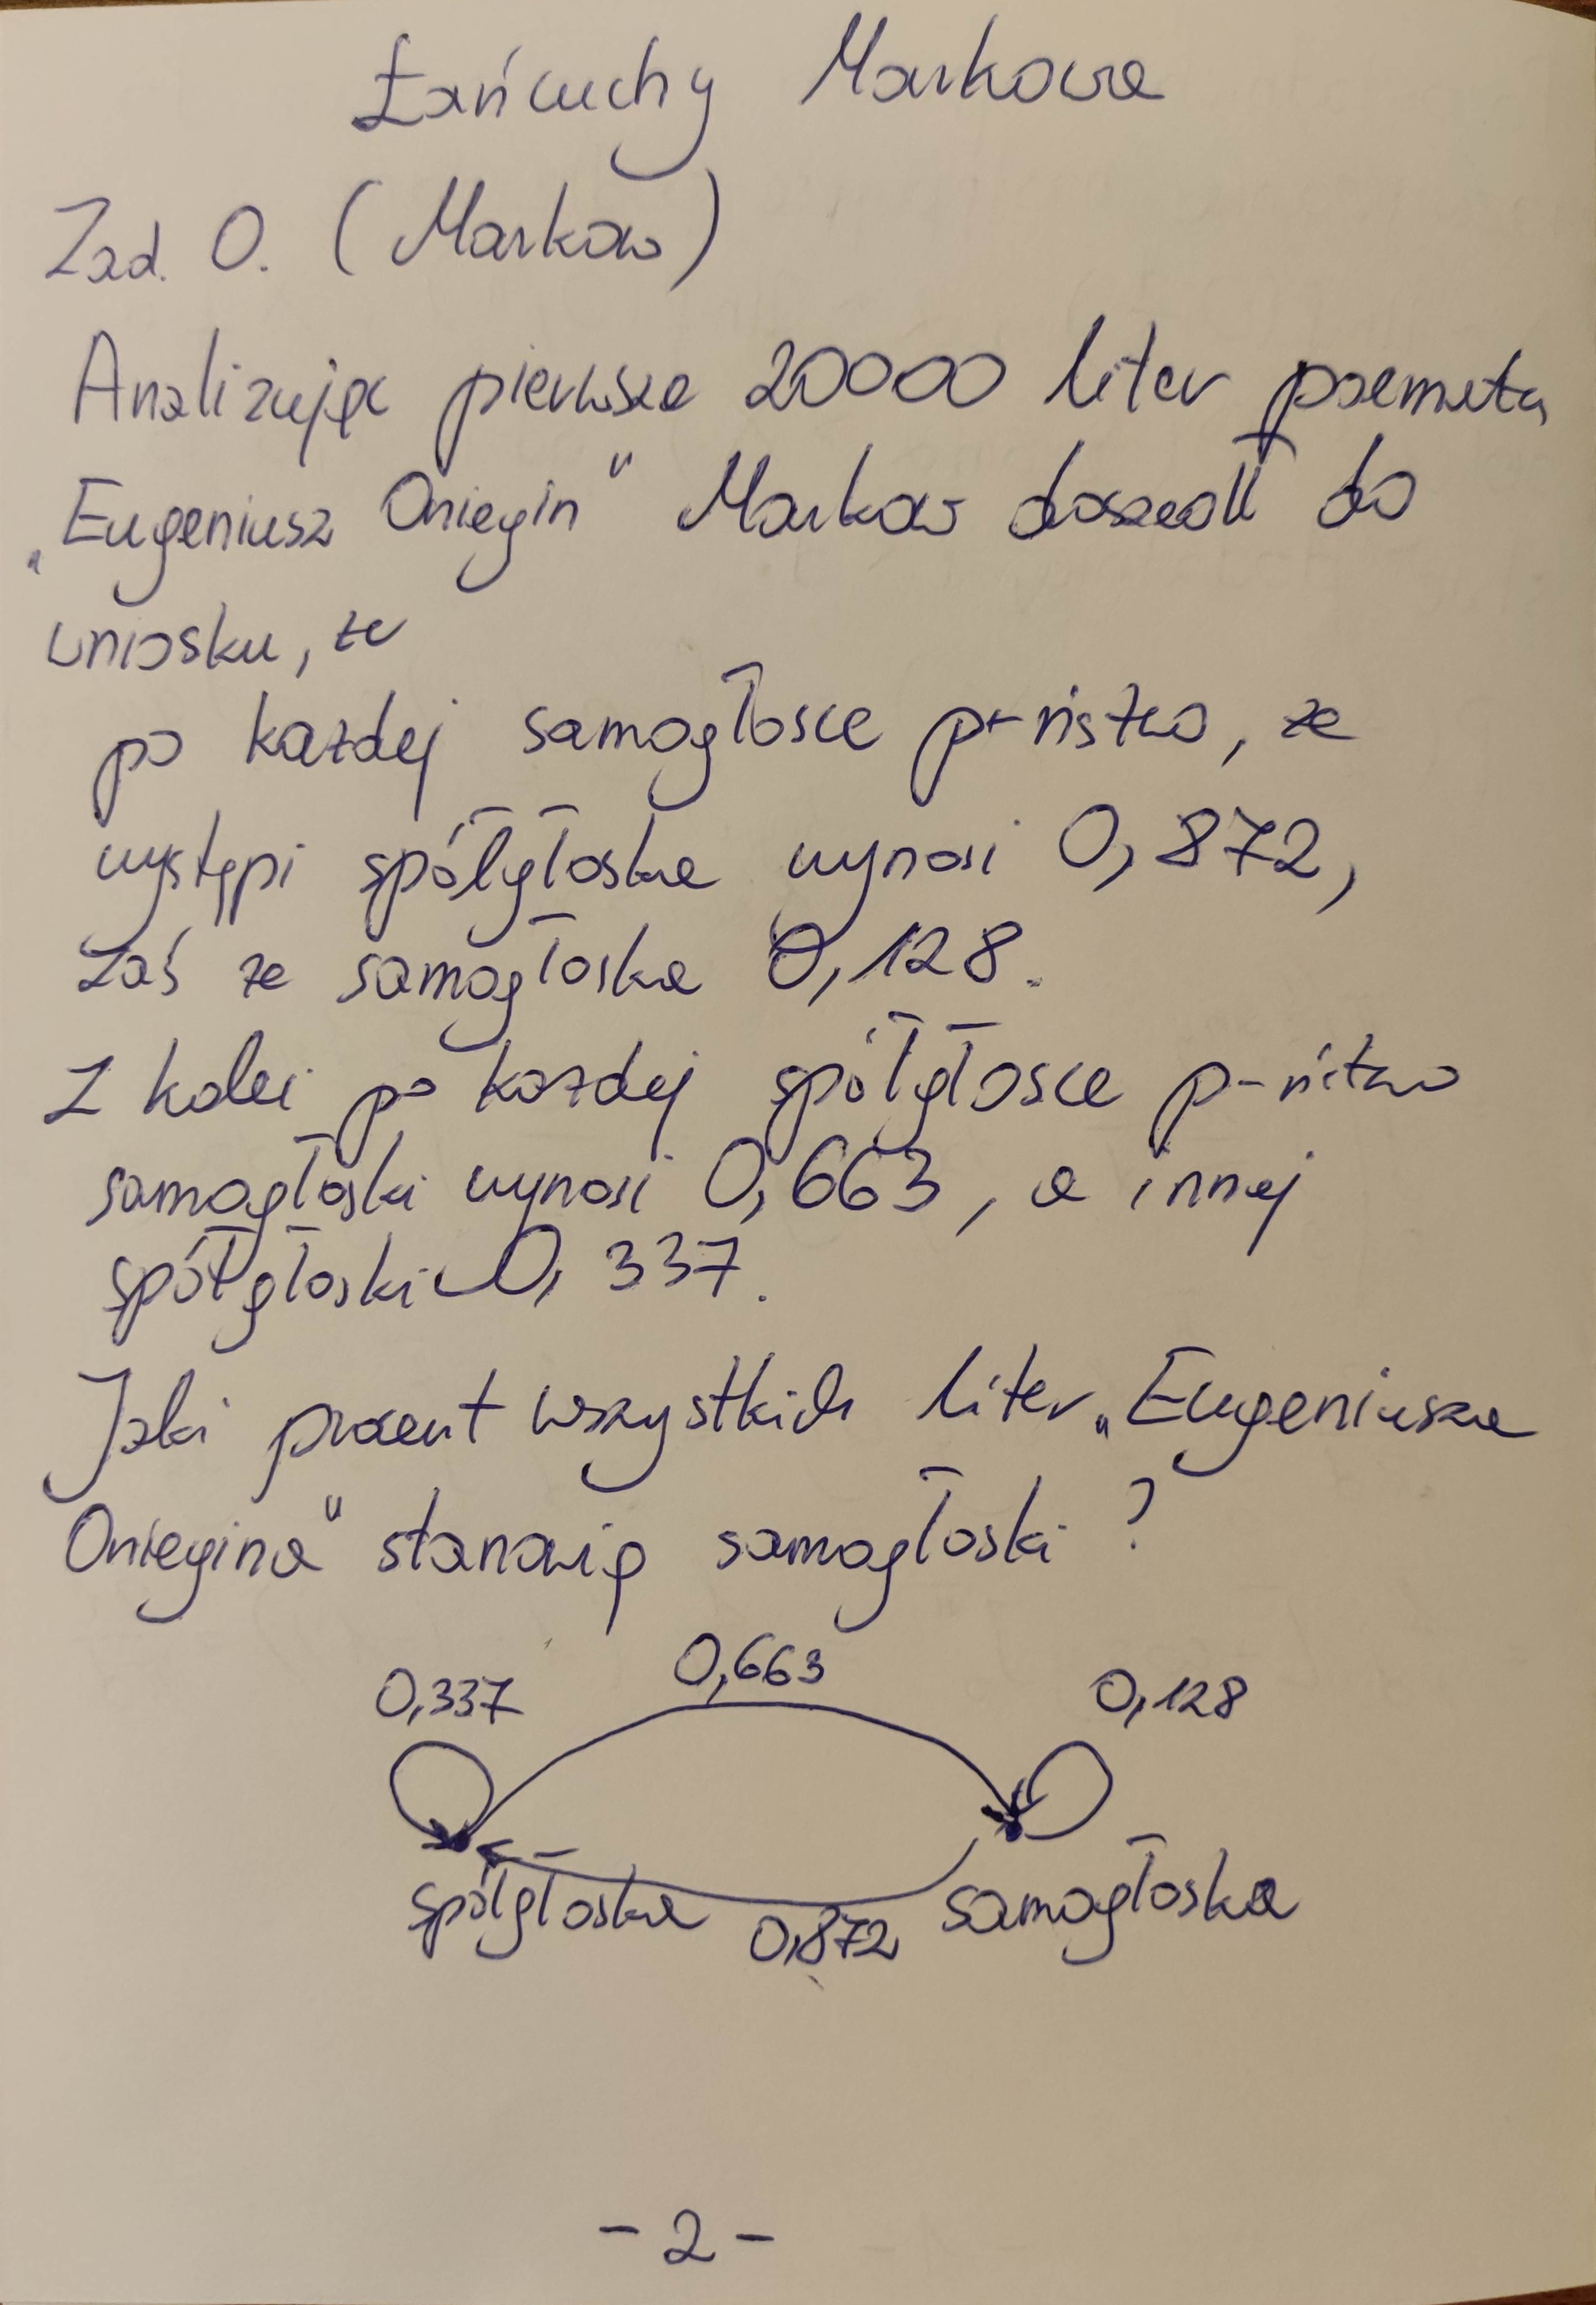 Łańcuchy Markowa
Zad. 0. (Markow)
Analizując pierwsze 20000 liter poematu
„Eugeniusz Oniegin" Markow doszedł do
wniosku, że
po każdej samogłosce p-ństwo, że
wystąpi spółgłoska wynosi 0,872,
zaś że samogłoska 0,128.
Z kolei po każdej spółgłosce p-ństwo
samogłoski wynosi 0,663, a innej
spółgłoski 0,337.
Jaki procent wszystkich liter „Eugeniusza
Oniegina" stanowią samogłoski?
0,663
0,337 0,128
spółgłoska 0,872 samogłoska
- 2 -